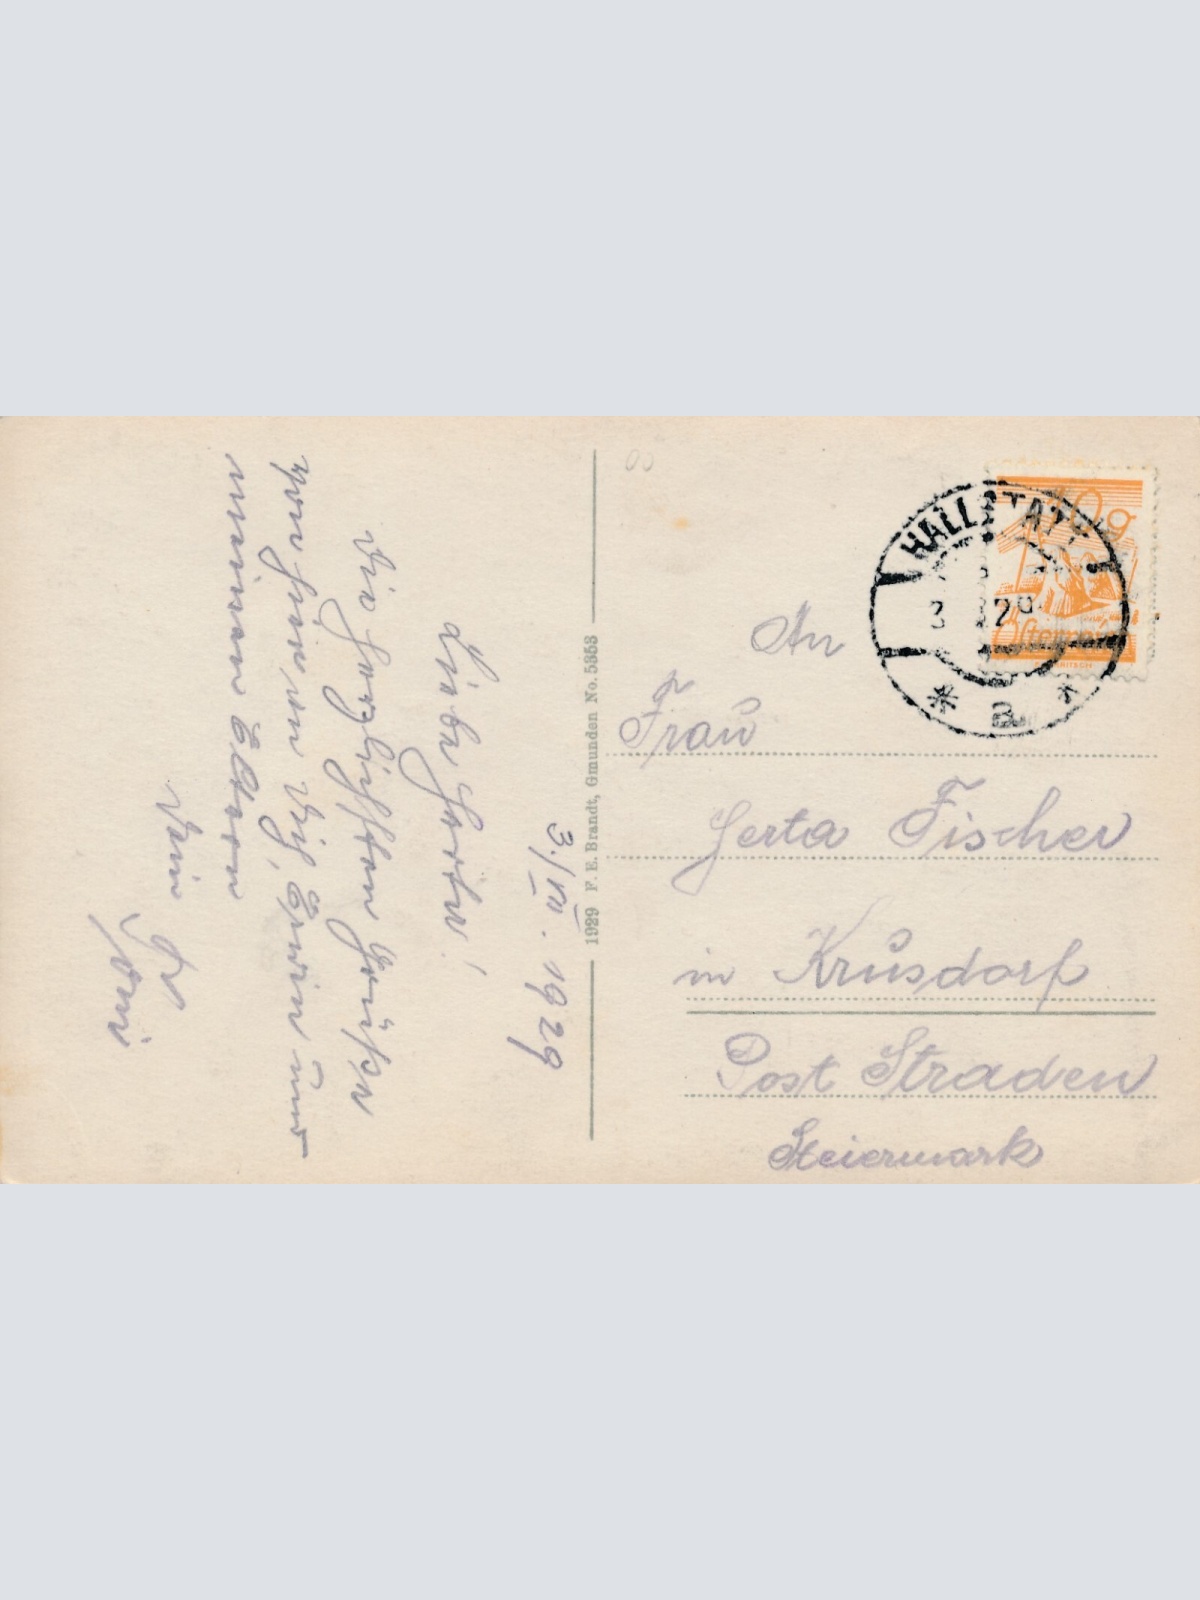 3./VII. 1929
Liebe Gerta!
Die herzlichsten Grüße
von hier an Dich, Erwin und
meinen Eltern
Dein
1929 F. E. Brandt, Gmunden No. 5353
HALLSTATT
3 29
a
10g
Österreich
An
Frau
Gerta Fischer
in Krusdorf
Post Straden
Steiermark